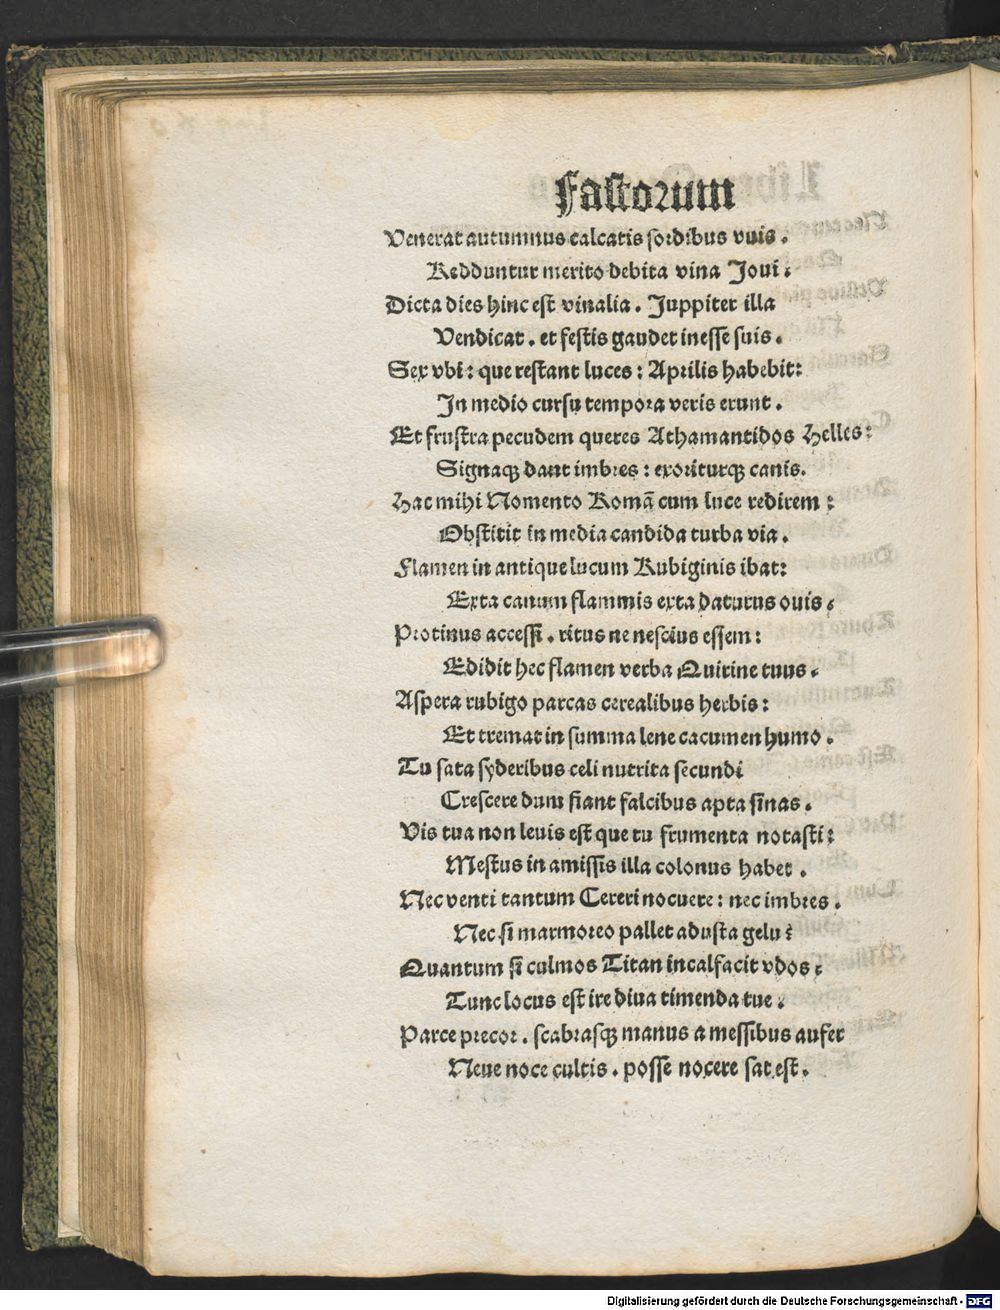 Fastorum
Venerat autumnus calcatis sordibus vuis.
Redduntur merito debita vina Joui.
Dicta dies hinc est vinalia. Juppiter illa
Vendicat. et festis gaudet inesse suis.
Sex vbi: que restant luces: Aprilis habebit:
In medio cursu tempora veris erunt.
Et frustra pecudem queres Athamantidos Helles:
Signaqꝫ dant imbres: exoriturqꝫ canis.
Hac mihi Nomento Romã cum luce redirem:
Obstitit in media candida turba via.
Flamen in antique lucum Rubiginis ibat:
Exta canum flammis exta daturus ouis.
Protinus accessi. ritus ne nescius essem:
Edidit hec flamen verba Quirine tuus.
Aspera rubigo parcas cerealibus herbis:
Et tremat in summa lene cacumen humo.
Tu sata syderibus celi nutrita secundi
Crescere dum fiant falcibus apta sinas.
Vis tua non leuis est que tu frumenta notasti:
Mestus in amissis illa colonus habet.
Nec venti tantum Cereri nocuere: nec imbres.
Nec si marmoreo pallet adusta gelu:
Quantum si culmos Titan incalfacit vdos:
Tunc locus est ire diua timenda tue.
Parce precor. scabrasqꝫ manus a messibus aufer
Neue noce cultis. posse nocere sat est.
Digitalisierung gefördert durch die Deutsche Forschungsgemeinschaft - DFG